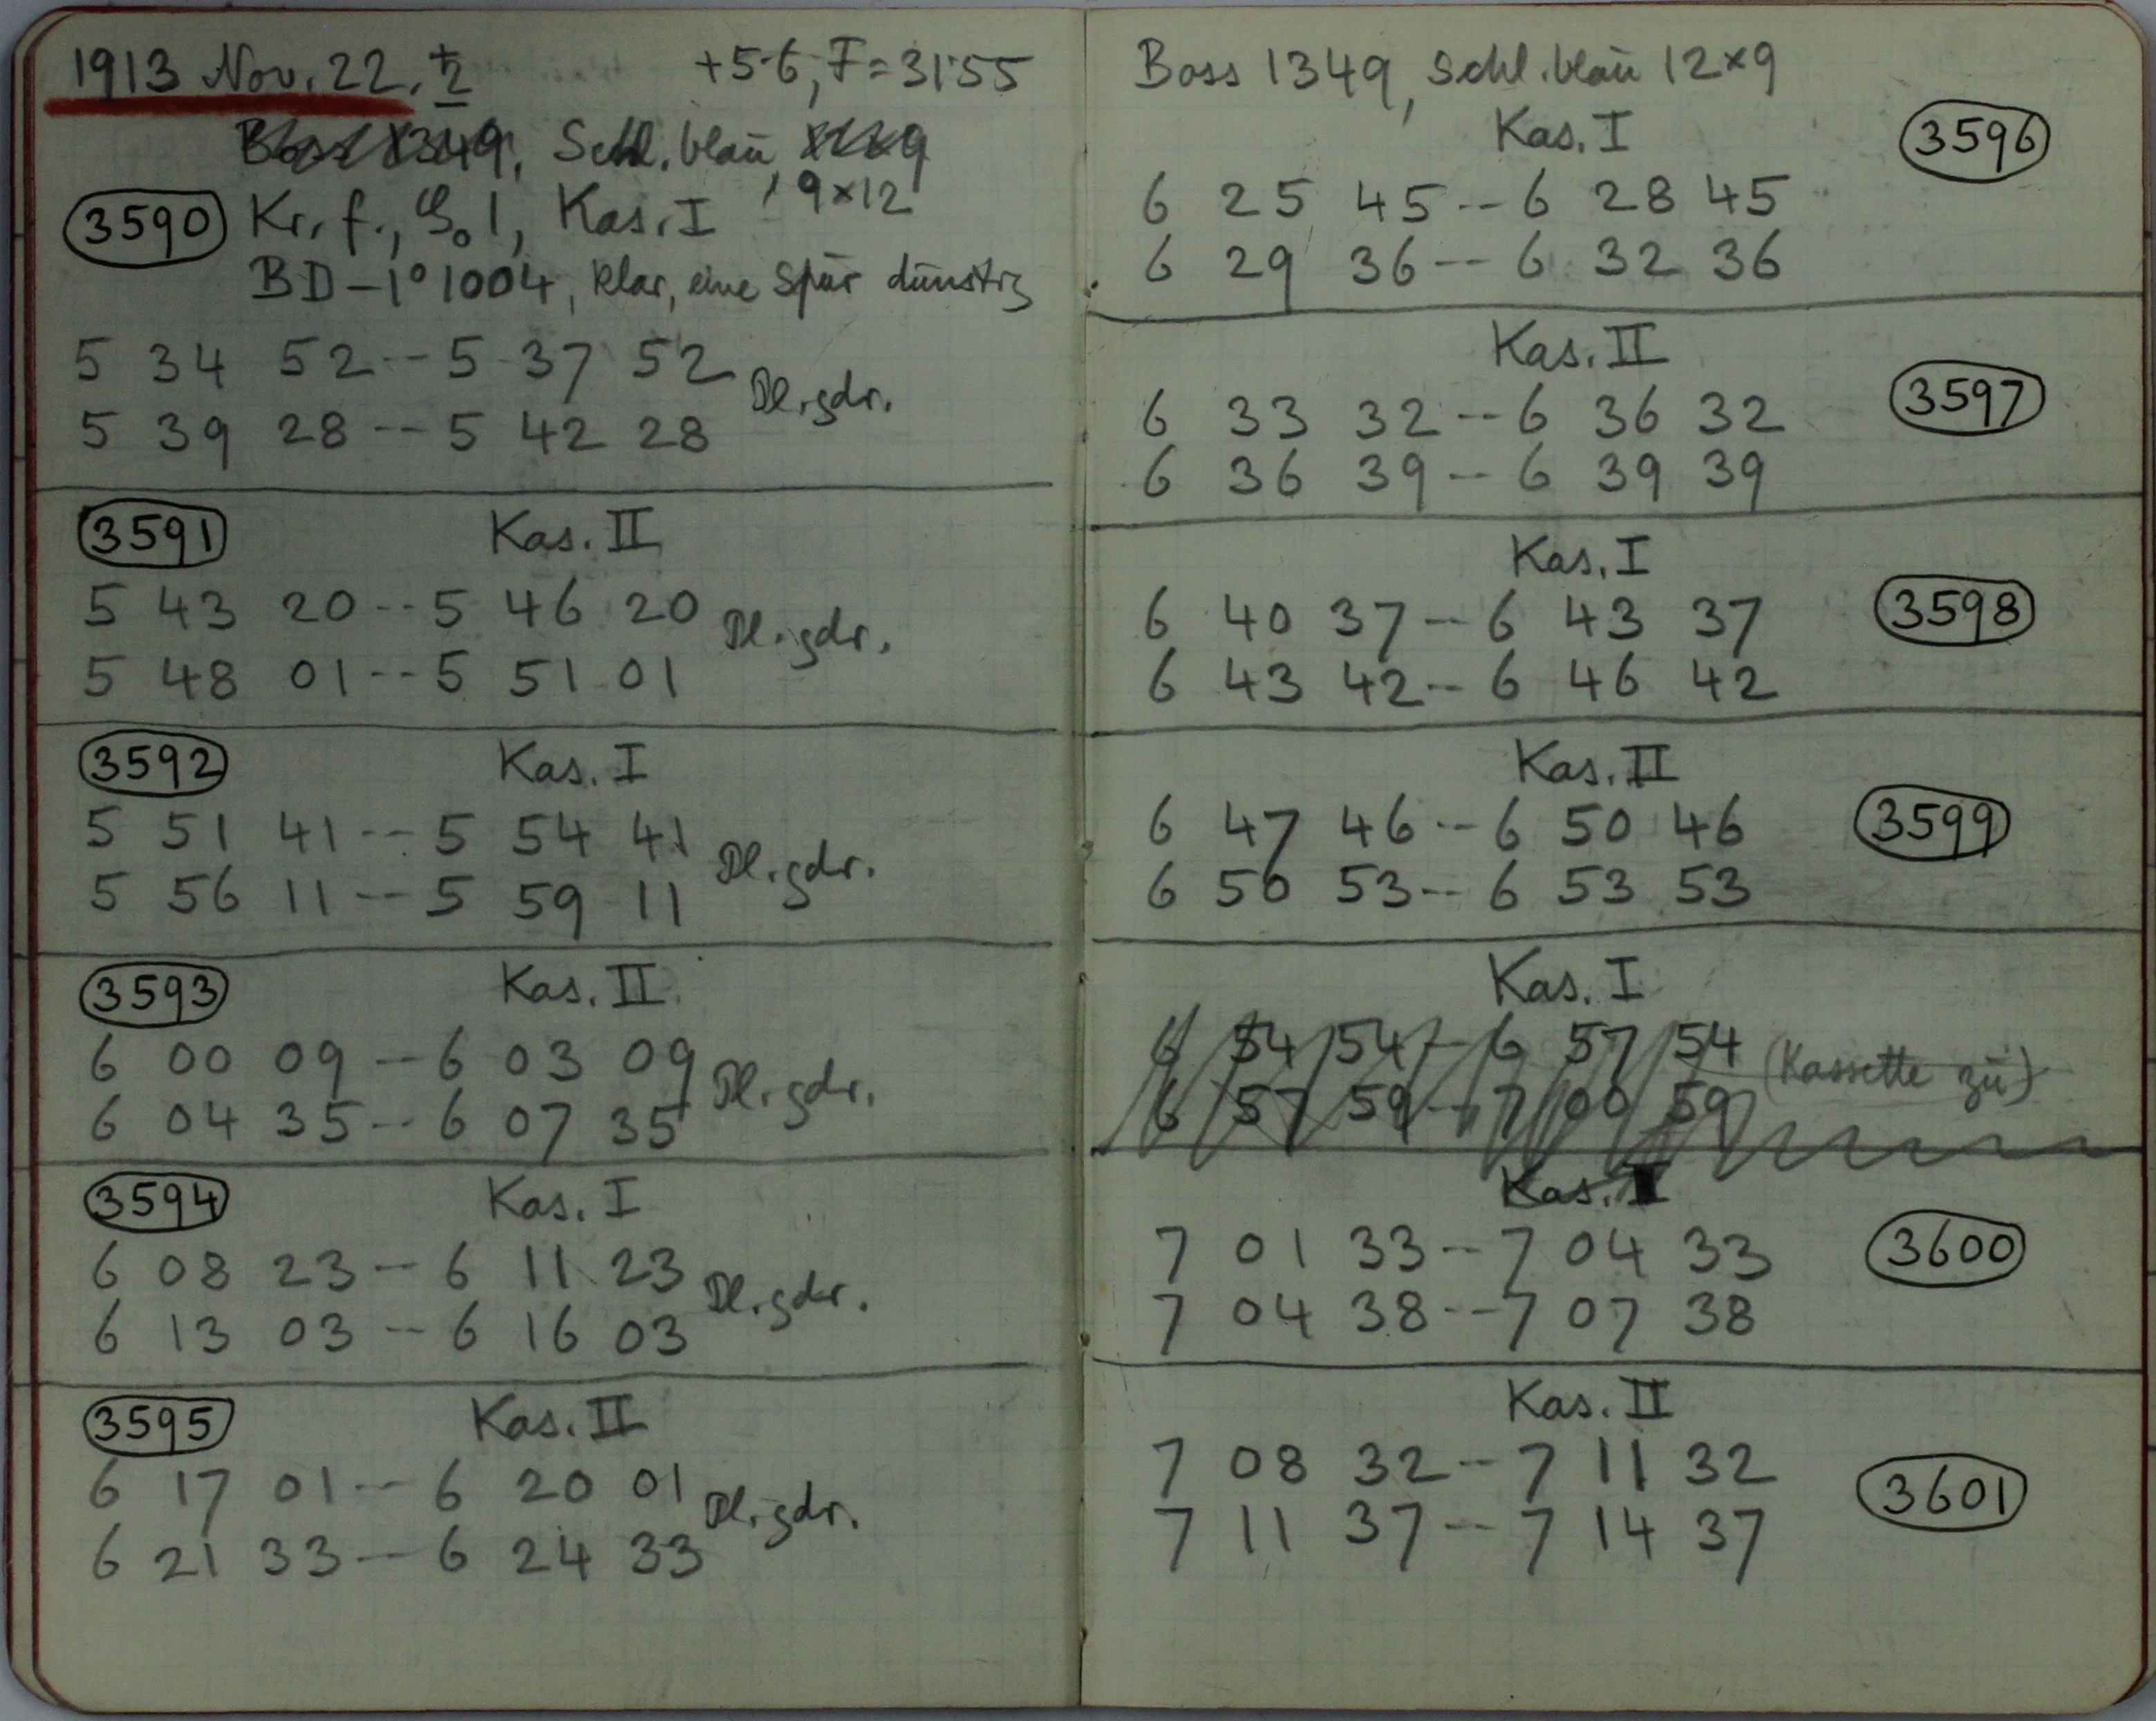 1913 Nov. 22. ♄ +5·6, F=31·55
Boss 1349, Schl. blau,
9×12
3590 Kr. f., S. 1, Kas. I
BD-1°1004, klar, eine Spur dunstig
5 34 52--5 37 52
Pl. gdr.
5 39 28--5 42 28
3591 Kas. II
5 43 20--5 46 20
Pl. gdr.
5 48 01--5 51 01
3592 Kas. I
5 51 41--5 54 41
Pl. gdr.
5 56 11--5 59 11
3593 Kas. II
6 00 09--6 03 09
Pl. gdr.
6 04 35--6 07 35
3594 Kas. I
6 08 23--6 11 23
Pl. gdr.
6 13 03--6 16 03
3595 Kas. II
6 17 01--6 20 01
Pl. gdr.
6 21 33--6 24 33
Boss 1349, Schl. blau 12×9
Kas. I 3596
6 25 45--6 28 45
6 29 36--6 32 36
Kas. II
3597
6 33 32--6 36 32
6 36 39--6 39 39
Kas. I
6 40 37--6 43 37 3598
6 43 42--6 46 42
Kas. II
6 47 46--6 50 46 3599
6 50 53--6 53 53
Kas. I
6 54 54--6 57 54 (Kassette zu)
6 57 59--7 00 59
Kas. I
7 01 33--7 04 33 3600
7 04 38--7 07 38
Kas. II
7 08 32--7 11 32
3601
7 11 37--7 14 37